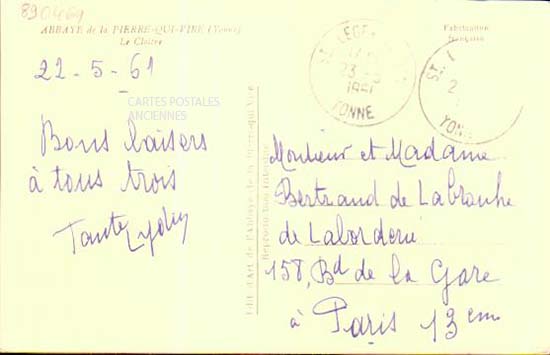 890469
ABBAYE de la PIERRE-QUI-VIRE (Yonne)
Le Cloître
Fabrication
française
22-5-61
CARTES POSTALES
ANCIENNES
Bons baisers
à tous trois
Tante
Edit. d'Art de l'Abbaye de la Pierre-qui-Vire
Reproduction interdite
ST. LEGER
23-5
1961
YONNE
ST. L
2
YONNE
Monsieur et Madame
Bertrand de
de Laborderie
158, Bd de la Gare
à Paris 13em